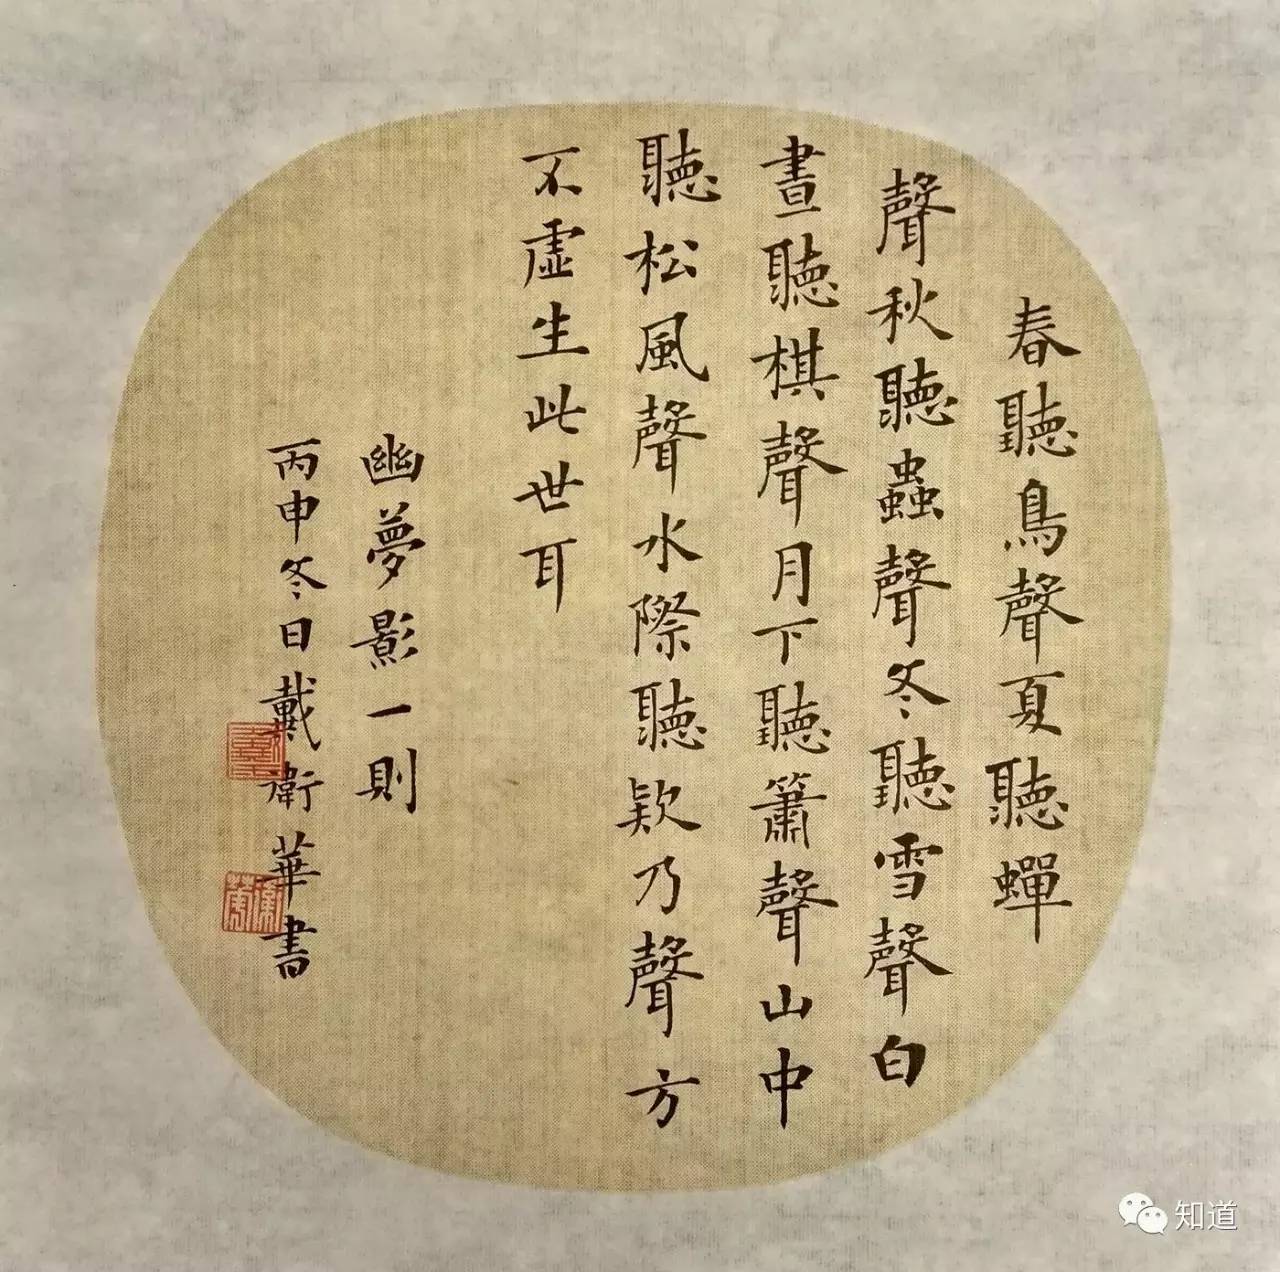 春聽鳥聲夏聽蟬
聲秋聽蟲聲冬聽雪聲白
晝聽棋聲月下聽簫聲山中
聽松風聲水際聽欸乃聲方
不虛生此世耳
幽夢影一則
丙申冬日戴衛華書
知道